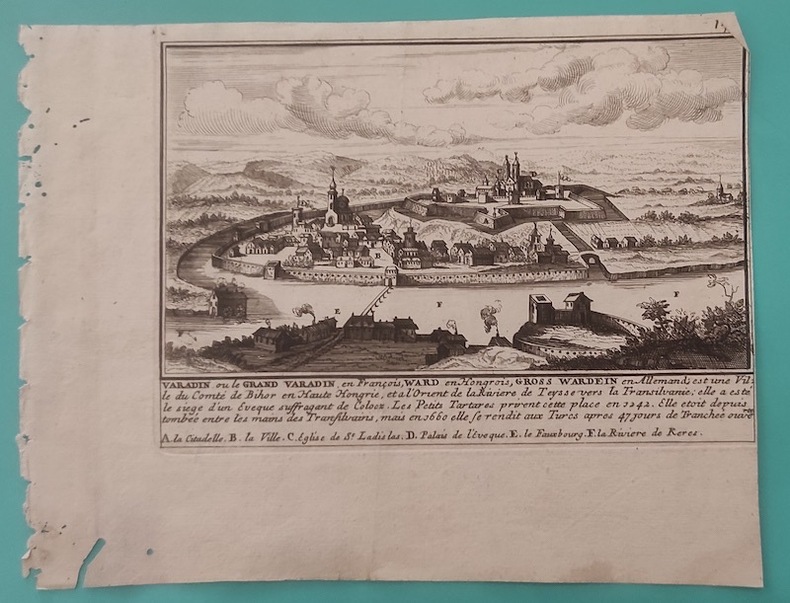 VARADIN ou le GRAND VARADIN, en François, WARD en Hongrois, GROSS WARDEIN en Allemand; est une Vil-
le du Comté de Bihor en Haute Hongrie, et a l'Orient de la Riviere de Teysse vers la Transilvanie; elle a esté
le siege d'un Eveque suffragant de Colocz. Les Petits Tartares prirent cette place en 1242. Elle etoit depuis
tombée entre les mains des Transilvains, mais en 1660 elle se rendit aux Turcs apres 47 jours de Tranchée ouverte
A. la Citadelle. B. la Ville. C. Eglise de St. Ladislas. D. Palais de l'Eveque. E. le Fauxbourg. F. la Riviere de Keres.
A
B
E
F
F